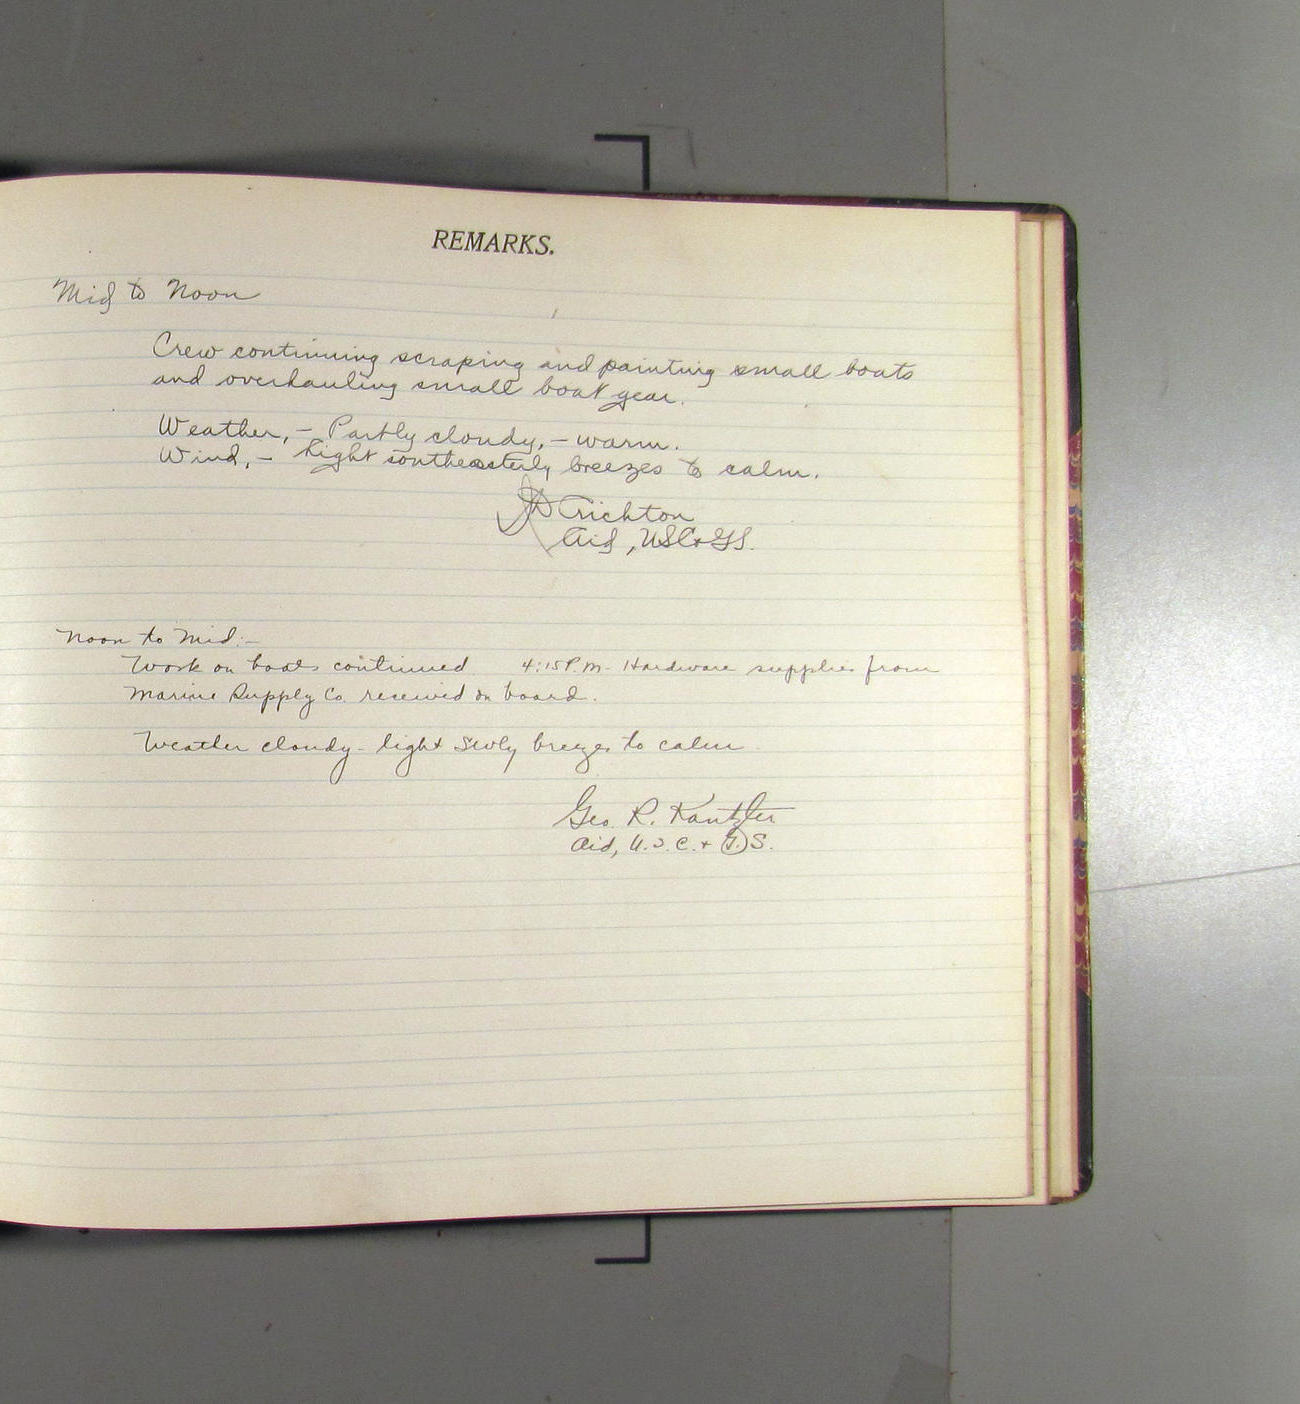 REMARKS.
Mid to Noon
Crew continuing scraping and painting small boats
and overhauling small boat gear.
Weather,- Partly cloudy,- warm.
Wind,- Light southeasterly breezes to calm.
Crichton
Aid, USC&GS.
Noon to Mid:-
Work on boats continued 4:15 P.M. Hardware supplies from
Marine Supply Co. received on board.
Weather cloudy - light SWly breezes to calm
Geo. R. Kantzler
Aid, U.S.C. & G.S.